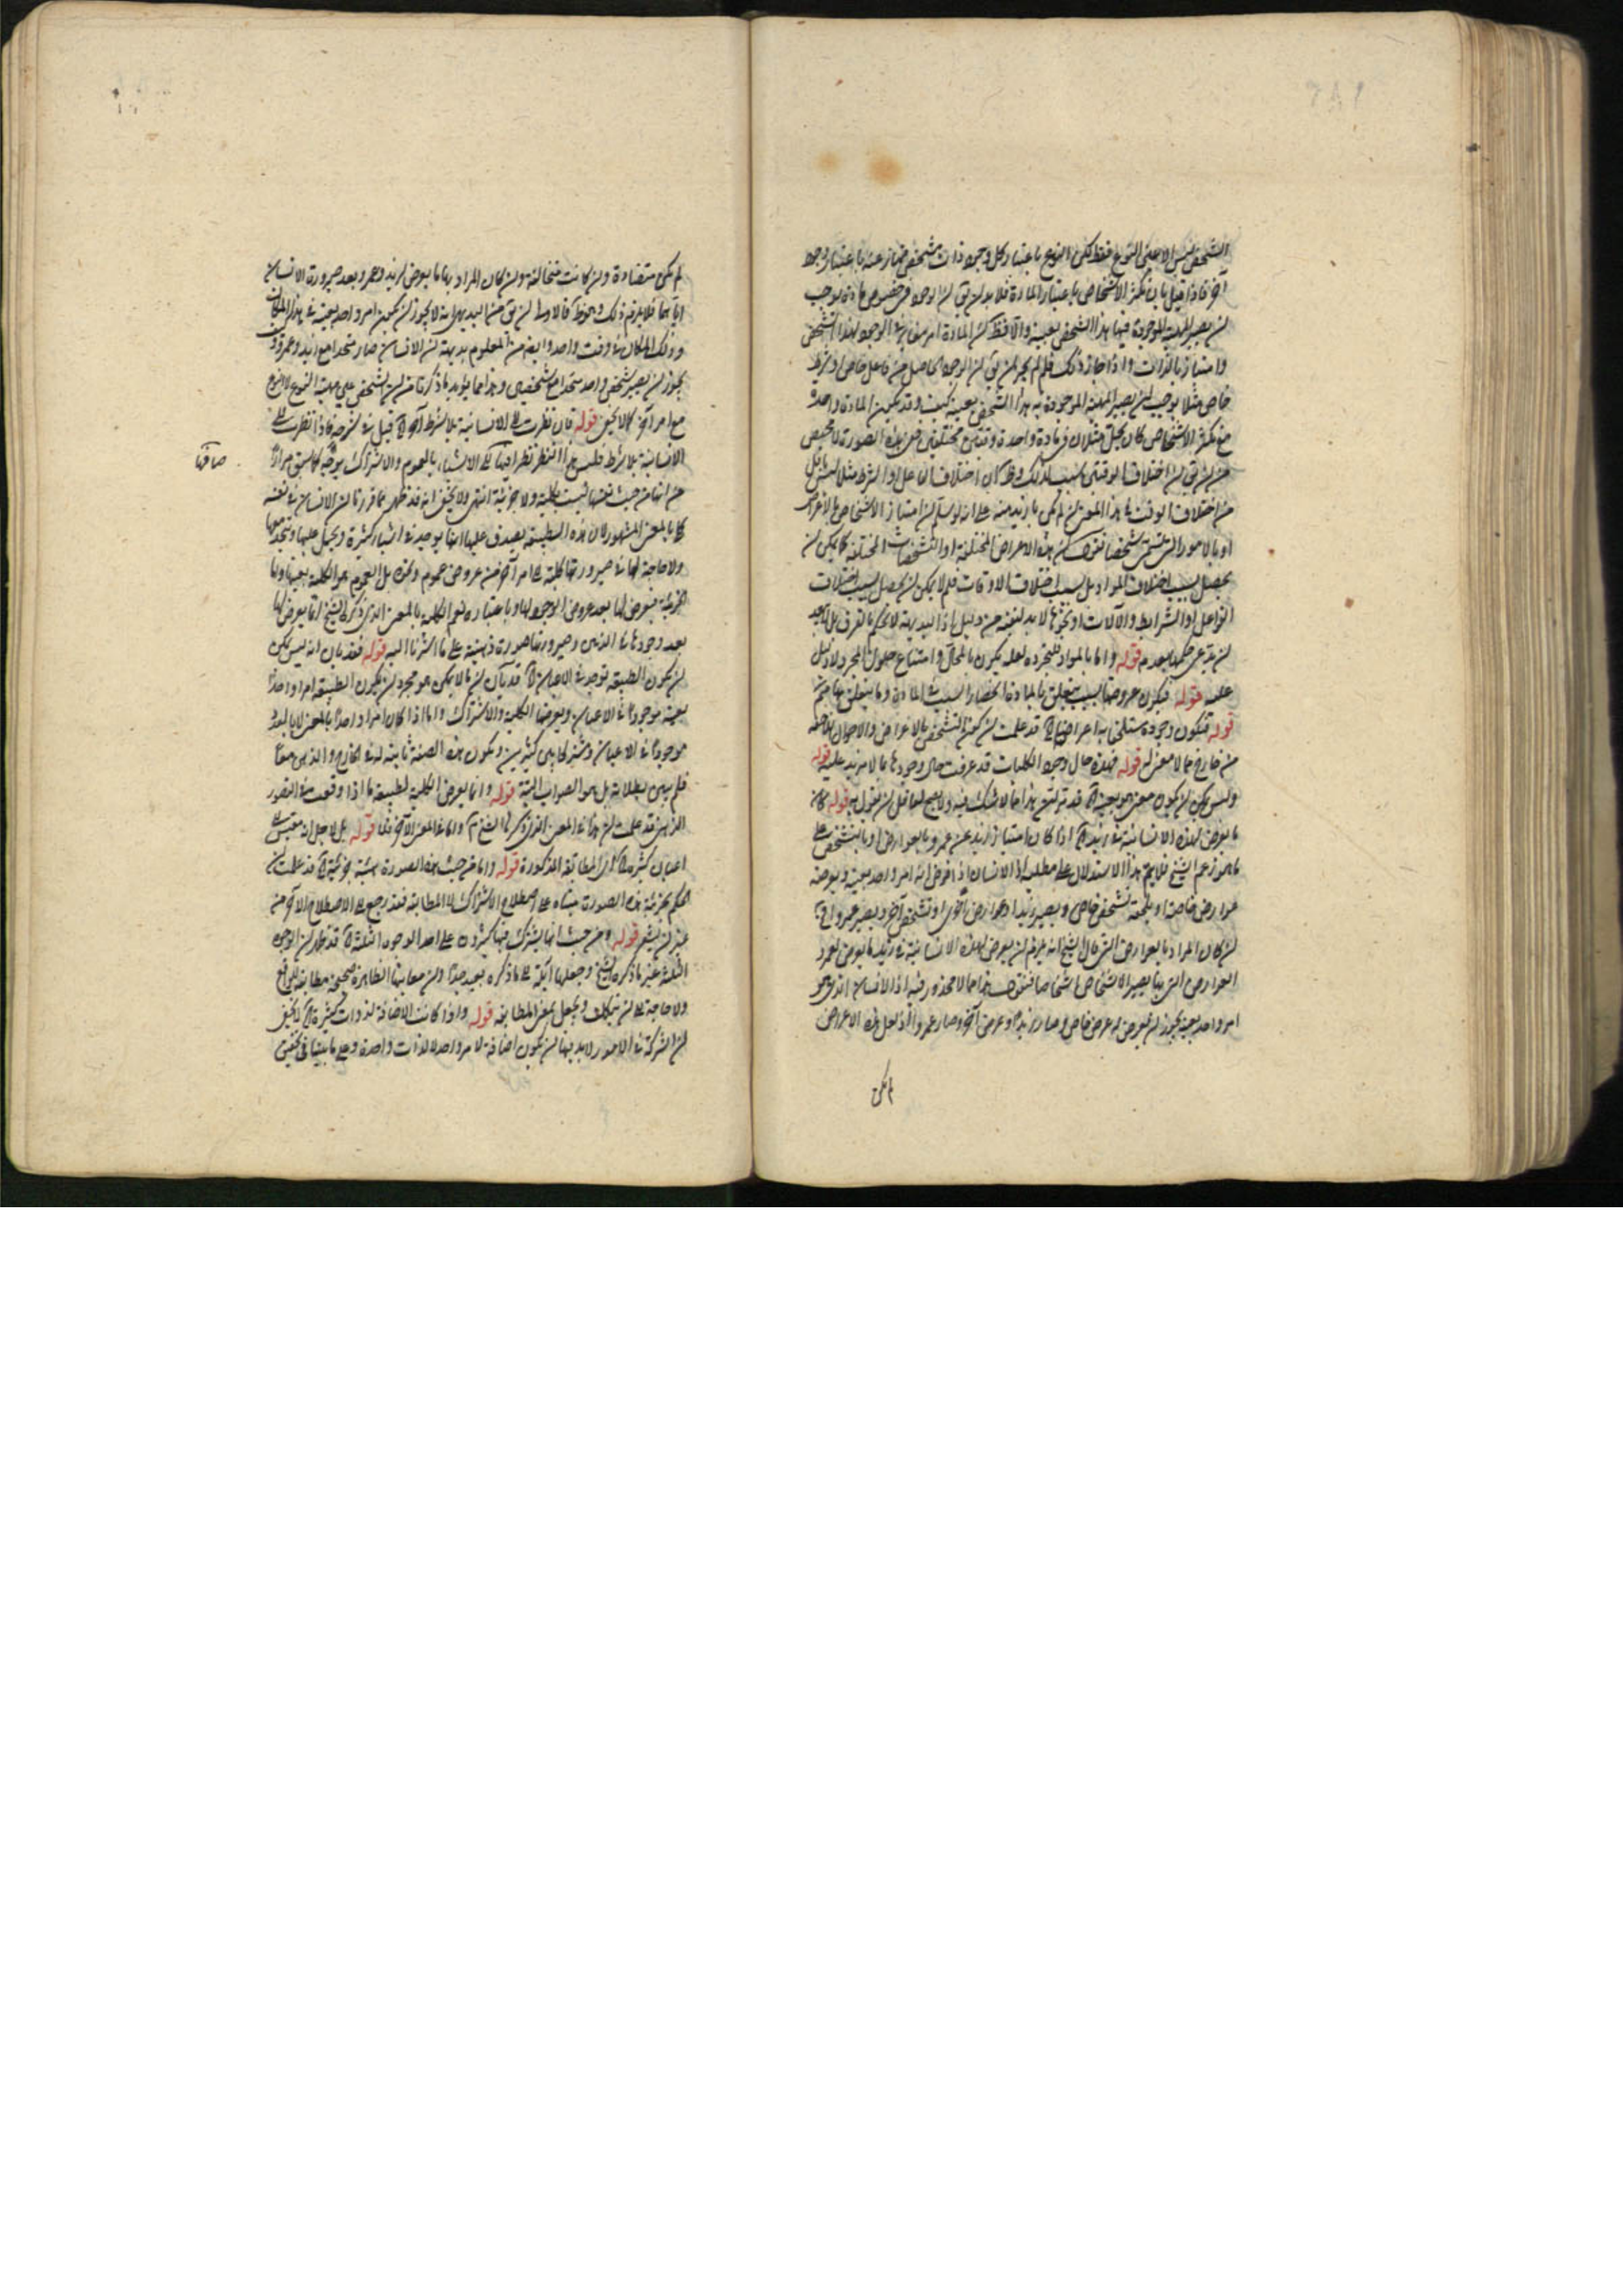 الشخص ليس الا عين النوع فقط لكن النوع باعتبار كل وجود ذات شخص ممتاز عنه باعتبار وجود
آخر فاذا قيل بان تكثر الاشخاص باعتبار المادة فلا بد ان يق ان الوجود في خصوص مادة يوجب
ان يصير المهية الموجودة فيها هذا الشخص بعينه والا فظ ان المادة امر مغاير الوجود لهذا الشخص
وامتياز بالذات واذا جاز ذلك فلم لم يجز ان يق ان الوجود الحاصل من فاعل خاص او شرط
خاص مثلا يوجب ان يصير المهية الموجودة به هذا الشخص بعينه كيف وقد يكون المادة واحدة
مع تكثر الاشخاص كان يحل مثلان في مادة واحدة وقتين مختلفين ففي هذه الصورة لا محيص
من ان يق ان اختلاف الوقتين سبب لذلك وظ ان اختلاف الفاعل او الشرط مثلا ليس باقل
من اختلاف الوقت في هذا المعنى ان لم يكن بازيد منه على انه لو سلم ان امتياز الاشخاص بالاعراض
او بالامور التي تسمى تشخصا نقول ان هذه الاعراض المختلفة او التشخصات المختلفة كما يمكن ان
يحصل بسبب اختلاف المواد بل بسبب اختلاف الاوقات فلم لا يمكن ان يحصل بسبب اختلاف
الفواعل او الشرايط والآلات او نحوها لا بد لنفيه من دليل اذ البديهة لا تحكم بالفرق بل لا يبعد
ان يدعى حكمها بعدم قوله واما بالمواد للمجردة لعله يكون بالمحال وامتناع حلول المجرد لا دليل
عليه قوله فيكون عروضها بسبب يتعلق بالمادة انحصار السبب في المادة وما يتعلق بها مم
قوله فيكون وجوده مستلحقا به اعراضا الخ قد علمت ان كون التشخص بالاعراض والاحوال اللاحقة
من خارج مما لا معنى له قوله فهذه حال وجود الكليات قد عرفت حال وجودها بما لا مزيد عليه قوله
وليس يمكن ان يكون معنى هو بعينه الخ
ما يعرض لهذه الانسانية في زيد الخ اذا كان امتياز زيد عن عمرو بالعوارض او بالتشخص على
ما هو زعم الشيخ فلا يتم هذا الاستدلال على مطلبه اذ الانسان اذا فرض انه امر واحد بعينه ويعرضه
عوارض خاصة او يلحقه تشخص خاص ويصير زيدا وعوارض اخرى او تشخص آخر ويصير عمروا فح
ان كان المراد بالعوارض التي قال الشيخ انه يلزم ان يعرض لهذه الانسانية في زيد ما يعرض لعمرو
العوارض التي بها يصير الاشخاص اشخاصا فنقول هذا مما لا محذور فيه اذ الانسان الذي هو
امر واحد بعينه يجوز ان يعرض له عرض خاص وصار زيدا وعرض آخر وصار عمروا اذ لعل هذه الاعراض
لم يكن
لم يكن متضادة وان كانت متخالفة وان كان المراد بها ما يعرض لزيد وعمرو بعد صيرورة الانسان
اياهما فلا يلزم ذلك وهو ظ فالاوسط ان يق من البديهي انه لا يجوز ان يكون امر واحد بعينه في هذا المكان
وذلك المكان في وقت واحد وايض من المعلوم بديهة ان الانسان صار متحدا مع زيد وعمرو ولا
يجوز ان يصير شخص واحد متحدا مع شخصين وهذا مما يؤيد ما ذكرنا من ان الشخص عين مهية النوع لا النوع
مع امر آخر كما لا يخفى قوله فان نظرت الى الانسانية بلا شرط آخر الخ قيل في شرحه فاذا نظرت الى
الانسانية بلا شرط فليس هذا النظر نظرا فيها الى الاشياء بالعموم والاشتراك بوجه كما سبق مرارا
من انها من حيث نفسها ليست بكلية ولا جزئية انتهى ولا يخفى انه قد ظهر مما قررنا ان الانسان في نفسه
صادقا
كلي بالمعنى المشهور لان هذه الطبيعة يصدق عليها انها يوجد في اشياء كثيرة ويحمل عليها ويتحد معها
ولا حاجة لها في صيرورتها كلية الى امر آخر من عروض عموم ونحوه بل العموم هو الكلية بعينها واما
الجزئية فيعرض لها بعد عروض الوجود لها وباعتباره نعم الكلية بالمعنى الذي ذكره الشيخ انما يعرض لها
بعد وجودها في الذهن وصيرورتها صورة ذهنية على ما اشرنا اليه قوله فقد بان انه ليس يمكن
ان يكون الطبيعة توجد في الاعيان الخ قد بان ان ما لا يمكن هو مجرد ان يكون الطبيعة امرا واحدا
بعينه موجودا في الاعيان ويعرضها الكلية والاشتراك واما اذا كان امرا واحدا بالمعنى لا بالعدد
موجودا في الاعيان ومشتركا بين كثيرين ويكون هذه الصفة ثابتة له في الخارج والذهن معا
فلم يبين بطلانه بل هو الصواب البتة قوله وانما يعرض الكلية لطبيعة ما اذا وقعت في التصور
الذهني قد علمت ان هذا في المعنى الذي ذكره الشيخ تم واما في المعنى الآخر فلا قوله بل لاجل انه مقيس الى
اعيان كثيرة الخ اي المطابقة المذكورة قوله واما من حيث هذه الصورة هيئة جزئية الخ قد علمت ان
الحكم بجزئية هذه الصورة مبناه على اصطلاح الاشتراك لا المطابقة فقد رجع الى الاصطلاح الآخر من
غير ان يشعر قوله ومن حيث انها يشترك فيها كثيرون على احد الوجوه الثلثة الخ قد
الثلثة غير ما ذكره الشيخ وجعلها آئلة الى ما ذكره بعيد جدا وان معانيها الظاهرة صحيحة مطابقة للواقع
ولا حاجة الى ان يتكلف ويجعل بمعنى المطابقة قوله واذا كانت الاضافة لذوات كثيرة الخ لا يخفى
ان الشركة في الامور لا بد فيها ان يكون اضافة لامر واحد لا لذات واحدة وعلى ما بينا في تحقيق